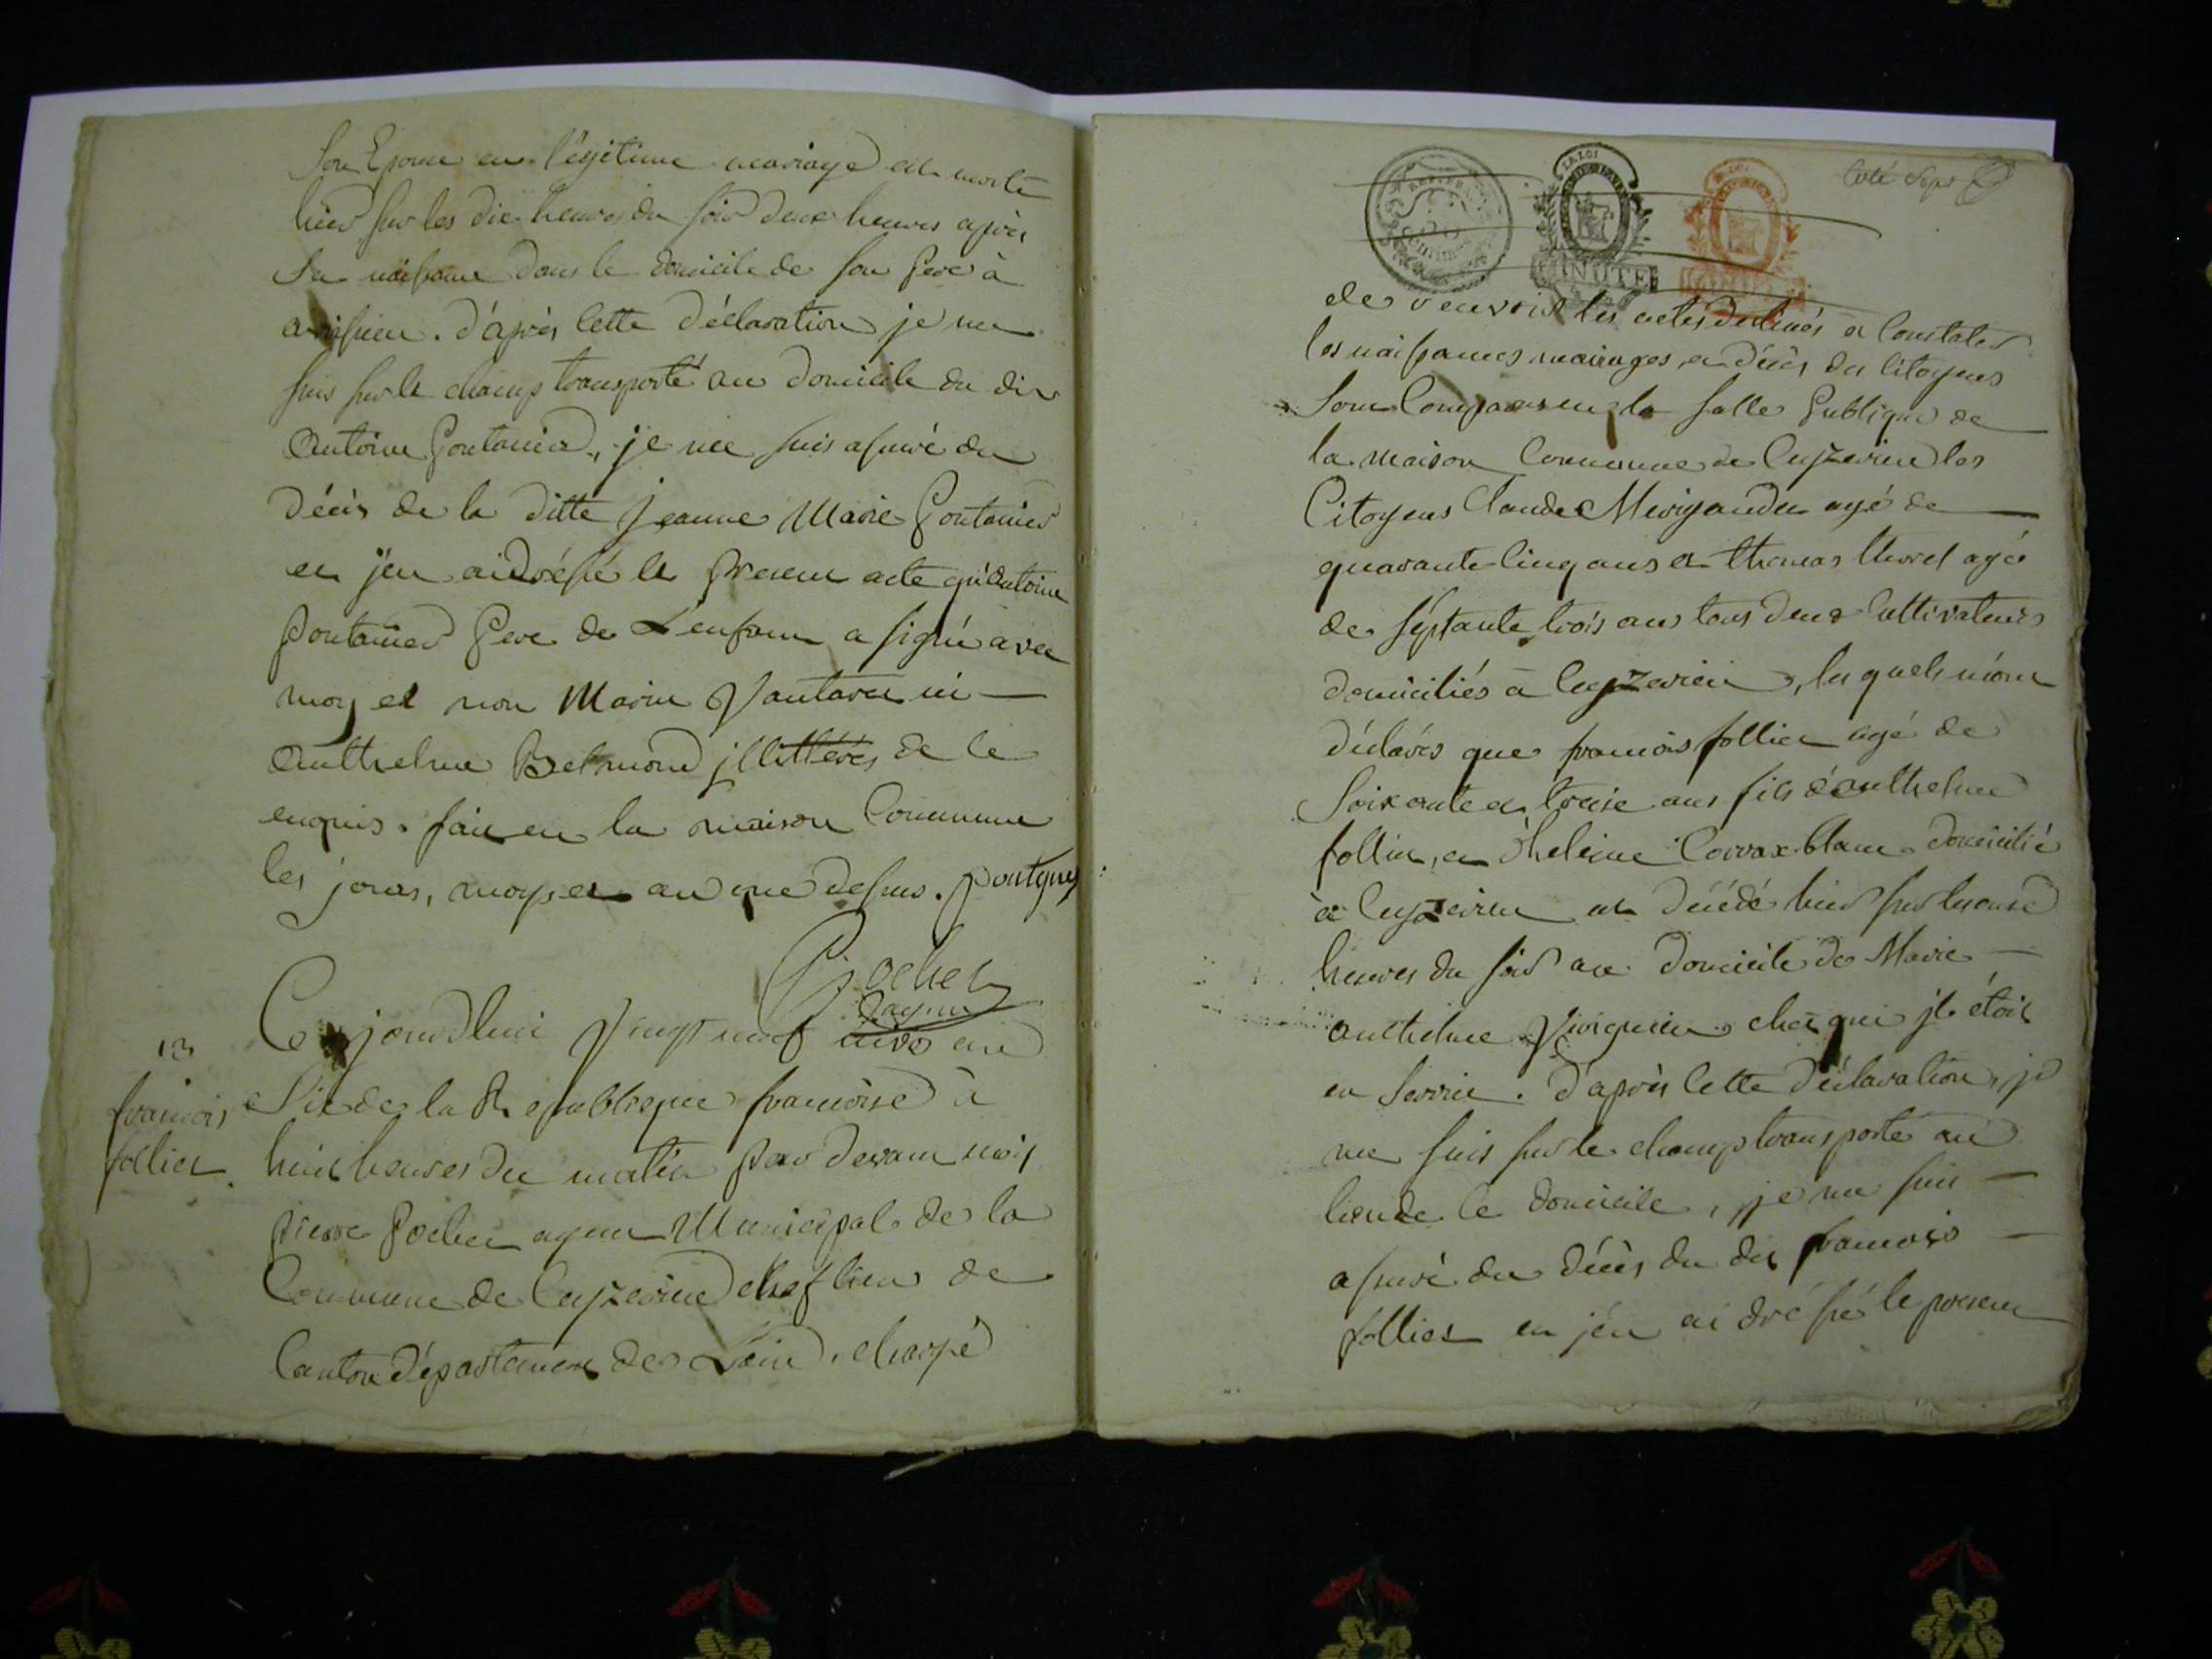 son Epouse en légitime mariage est morte
hier sur les dix heures du soir deux heures après
sa naissance dans le domicile de son Pere à
d'après cette Déclaration je me
suis sur le champ transporté au Domicile du dit
Antoine Pontanier, je me suis assuré du
Décès de la ditte Jeanne Marie Pontanier
et j'en ai dréssé le present acte qu'Antoine
Pontanier Pere de L'enfant a signé avec
moy et non Marin ni
Anthelme Belmond jllittérés de ce
enquis. fait en la maison Commune
les jours, moys et an que dessus.
Pochet
agent
13
francois
folliet
Ce jourdhui Vingt neuf an
Six de la Republique francoise à
huit heures du matin par devant moy
pierre Pochet agent Municipal de la
Commune de Ceyzerieu chef lieu de
Canton Département de Lain, chargé
Coté Sept
LA LOI
MINUTE
de recevoir les actes destinés à Constater
les naissances mariages et décès des Citoyens
sont Comparus en la salle Publique de
la maison Commune de Ceyzerieu les
Citoyens Claude agé de
quarante cinq ans et thomas agé
de séptante trois ans tous deux Cultivateurs
domiciliés à Ceyzerieu, lesquels m'ont
déclarés que francois folliet agé de
Soixante et treise ans fils d'anthelme
follier, et d'heleine domicilié
à Ceyzerieu est décédé hier sur les onse
heures du soir au Domicile de Marie
anthelme chez qui jl étoit
en service. d'après cette déclaration, je
me suis sur le champ transporté au
lieu de ce domicile, je me suis
assuré du décès du dit francois
follier et j'én ai dréssé le present